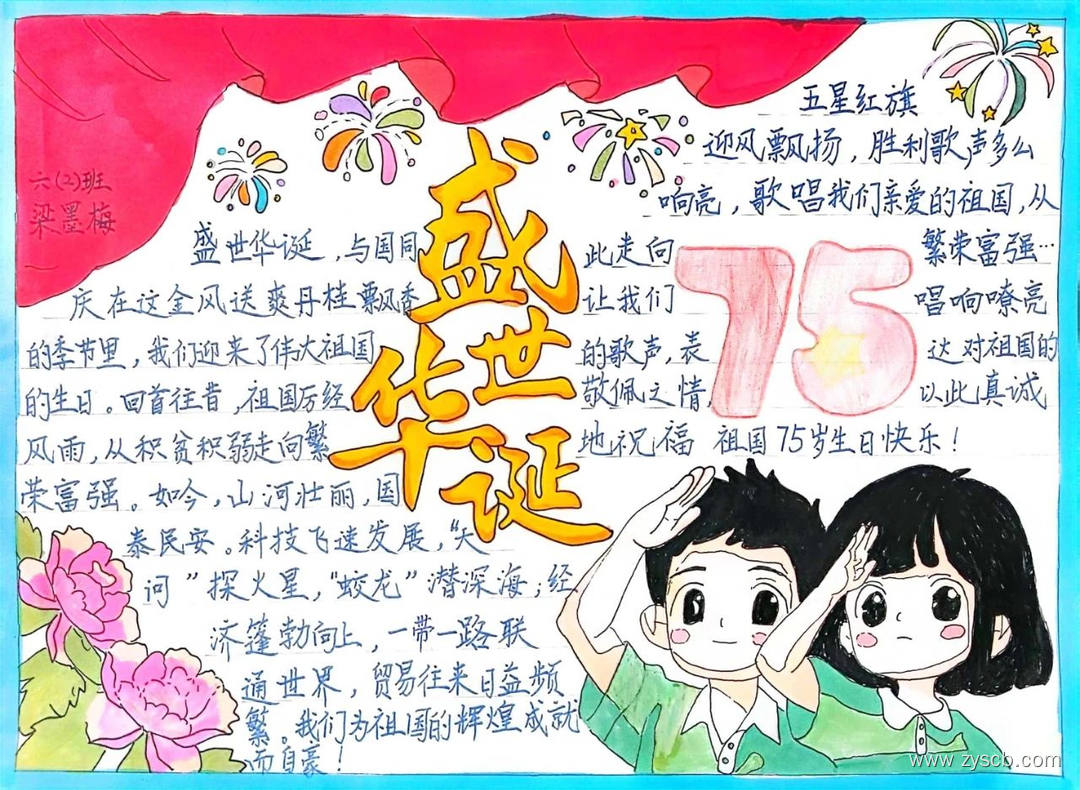 六(2)班
梁墨梅
盛世华诞
盛世华诞，与国同
庆在这金风送爽丹桂飘香
的季节里，我们迎来了伟大祖国
的生日。回首往昔，祖国历经
风雨，从积贫积弱走向繁
荣富强。如今，山河壮丽，国
泰民安。科技飞速发展，“天
问”探火星，“蛟龙”潜深海；经
济篷勃向上，一带一路联
通世界，贸易往来日益频
繁。我们为祖国的辉煌成就
而自豪！
五星红旗
迎风飘扬，胜利歌声多么
响亮，歌唱我们亲爱的祖国，从
此走向 繁荣富强…
让我们 唱响嘹亮
的歌声，表 达对祖国的
敬佩之情， 以此真诚
地祝福 祖国75岁生日快乐！
75
www.zyscb.com